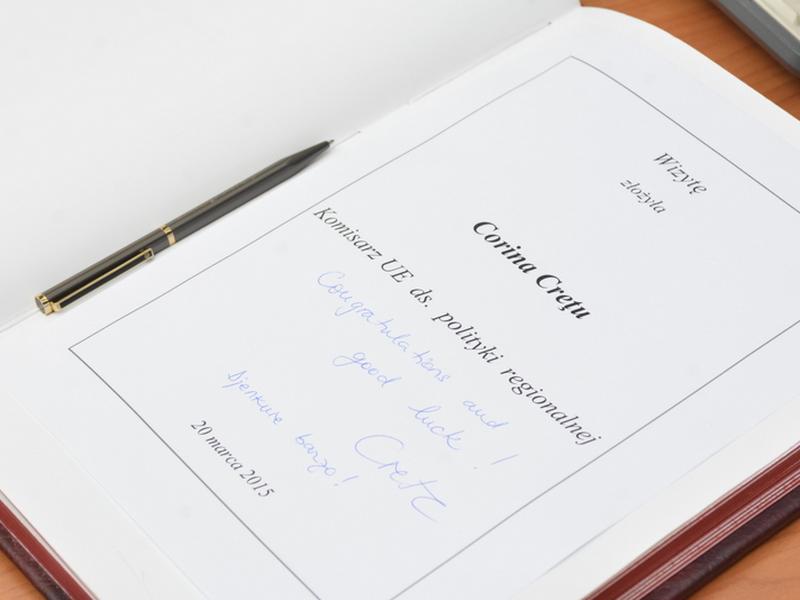 Wizytę
złożyła
Corina Crețu
Komisarz UE ds. polityki regionalnej
Congratulations and
good luck!
Cretz
Djenkuie banzo!
20 marca 2015